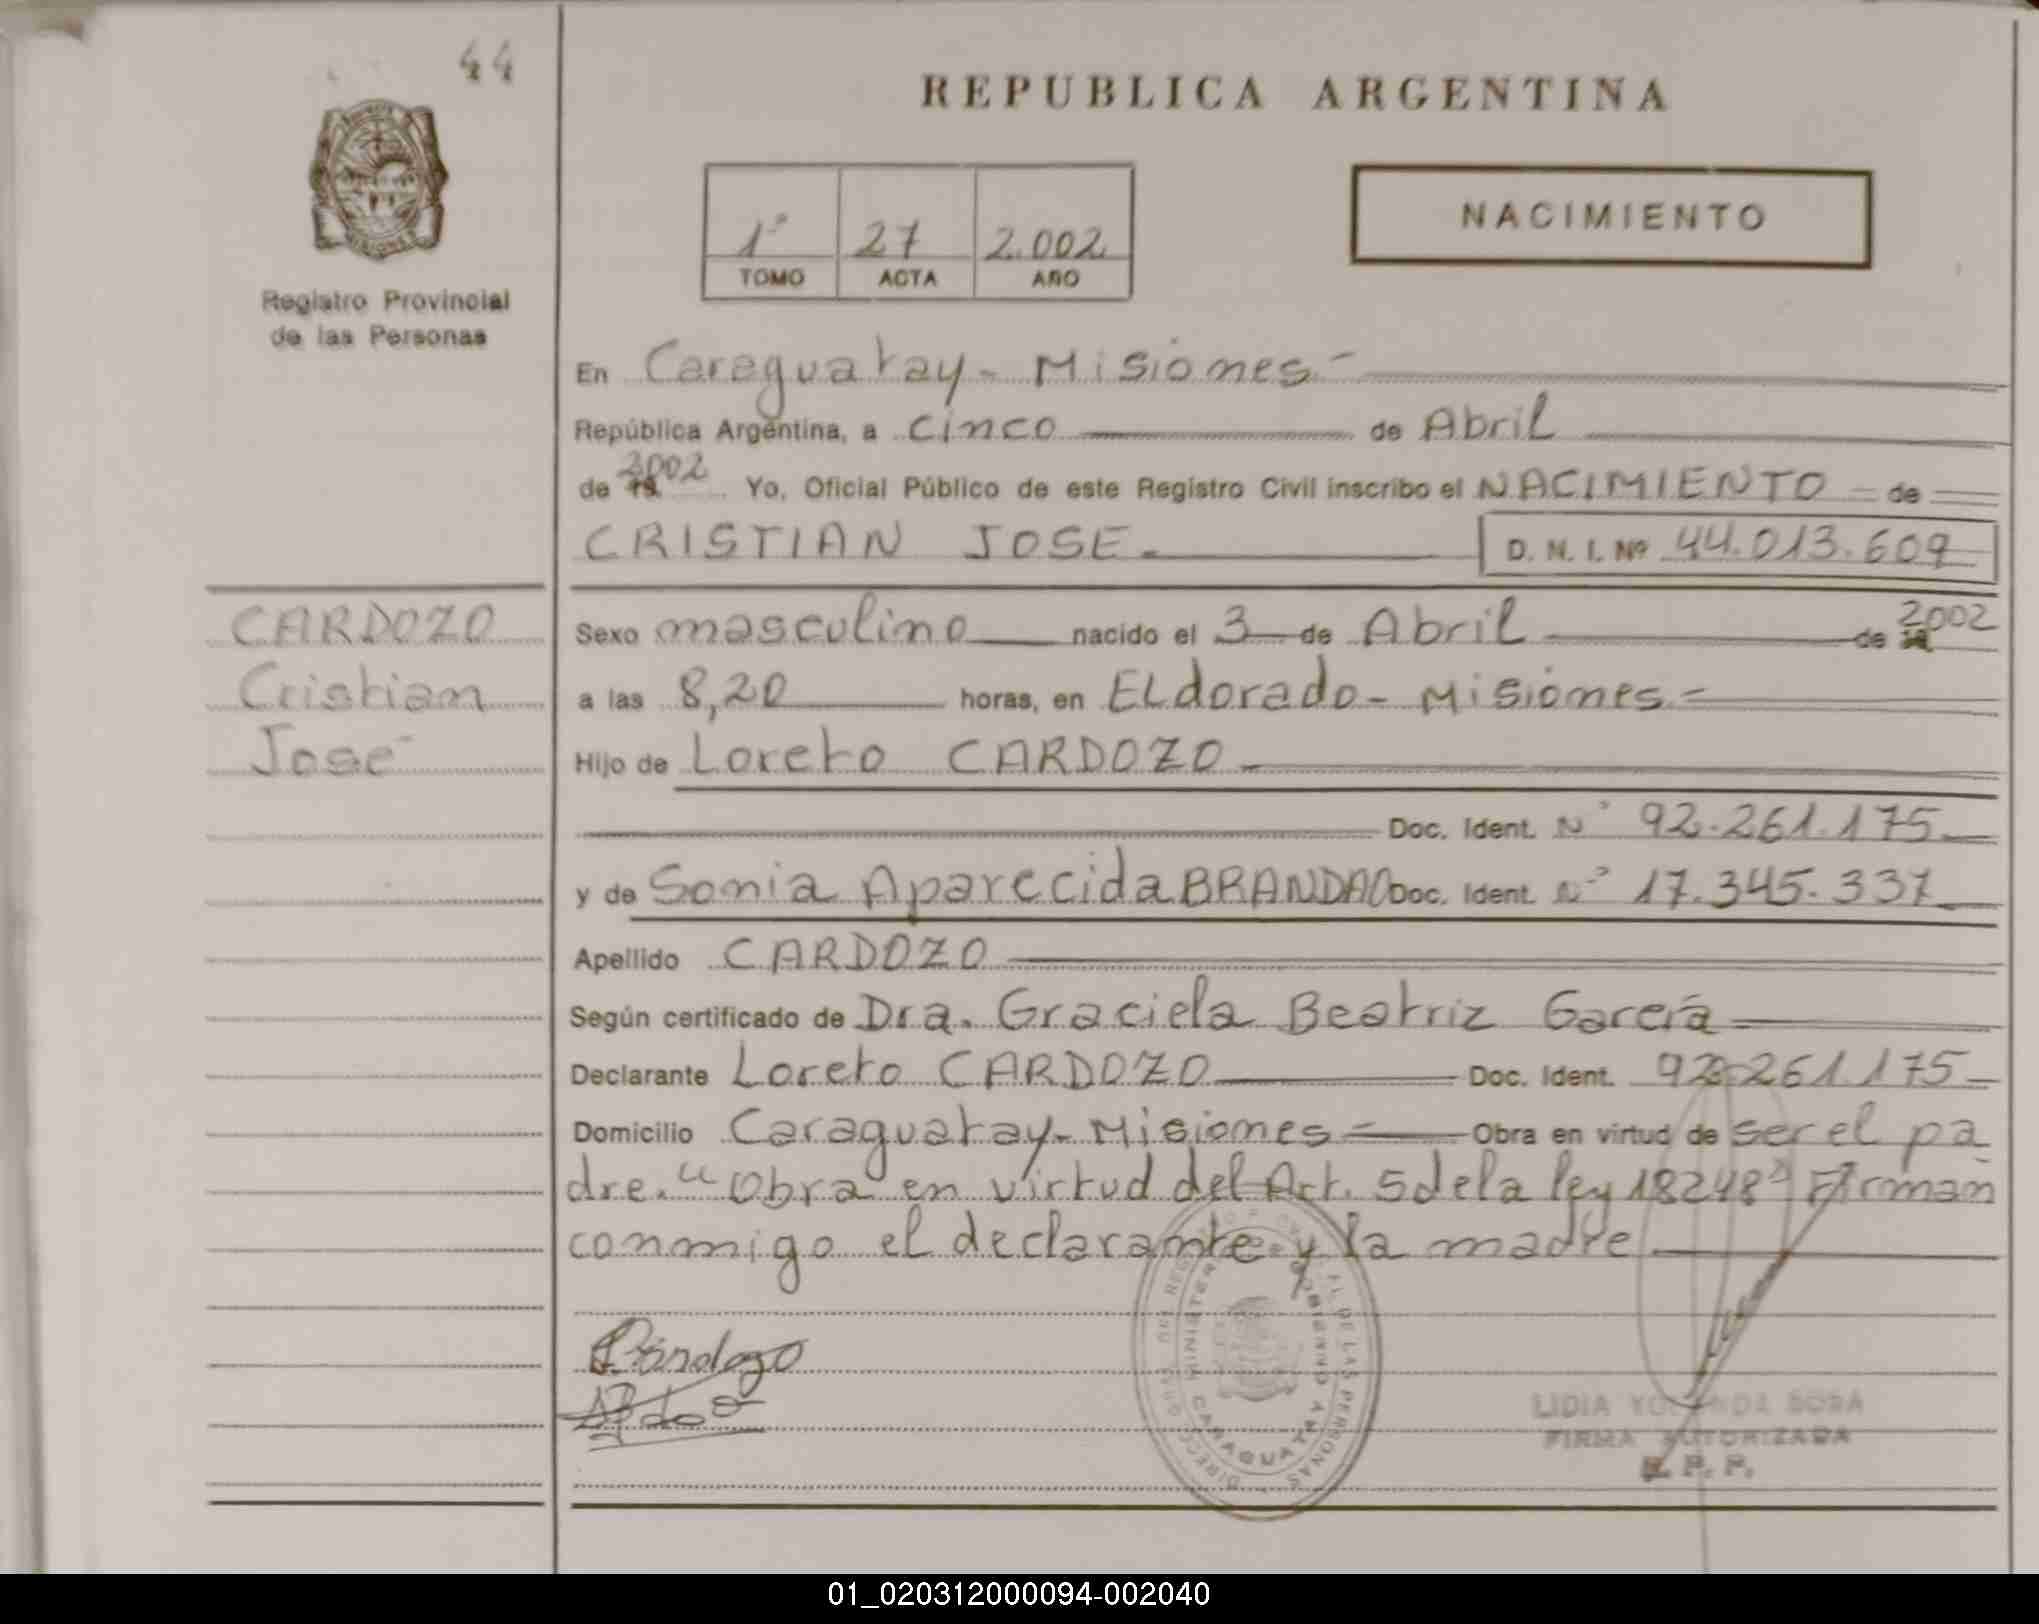 44
REPUBLICA ARGENTINA
1º 27 2.002
TOMO ACTA AÑO
NACIMIENTO
Registro Provincial
de las Personas
En Caraguatay - Misiones -
República Argentina, a cinco de Abril
de 2002 Yo, Oficial Público de este Registro Civil inscribo el NACIMIENTO de
CRISTIAN JOSE - D. N. I. Nº 44.013.609
CARDOZO
Cristian
José
Sexo masculino nacido el 3 de Abril de 2002
a las 8,20 horas, en ELdorado - Misiones -
Hijo de Loreto CARDOZO -
Doc. Ident. Nº 92.261.175
y de Sonia Aparecida BRANDAO Doc. Ident. Nº 17.345.337
Apellido CARDOZO
Según certificado de Dra. Graciela Beatriz García
Declarante Loreto CARDOZO Doc. Ident. 92.261.175
Domicilio Caraguatay - Misiones - Obra en virtud de ser el pa
dre. "Obra en virtud del Art. 5 de la ley 18248" Firman
conmigo el declarante y la madre
Cardozo
MINISTERIO GOBIERNO CARAGUATAY
DE LAS PERSONAS
LIDIA YOLANDA
FIRMA AUTORIZADA
R. P. P.
01_020312000094-002040